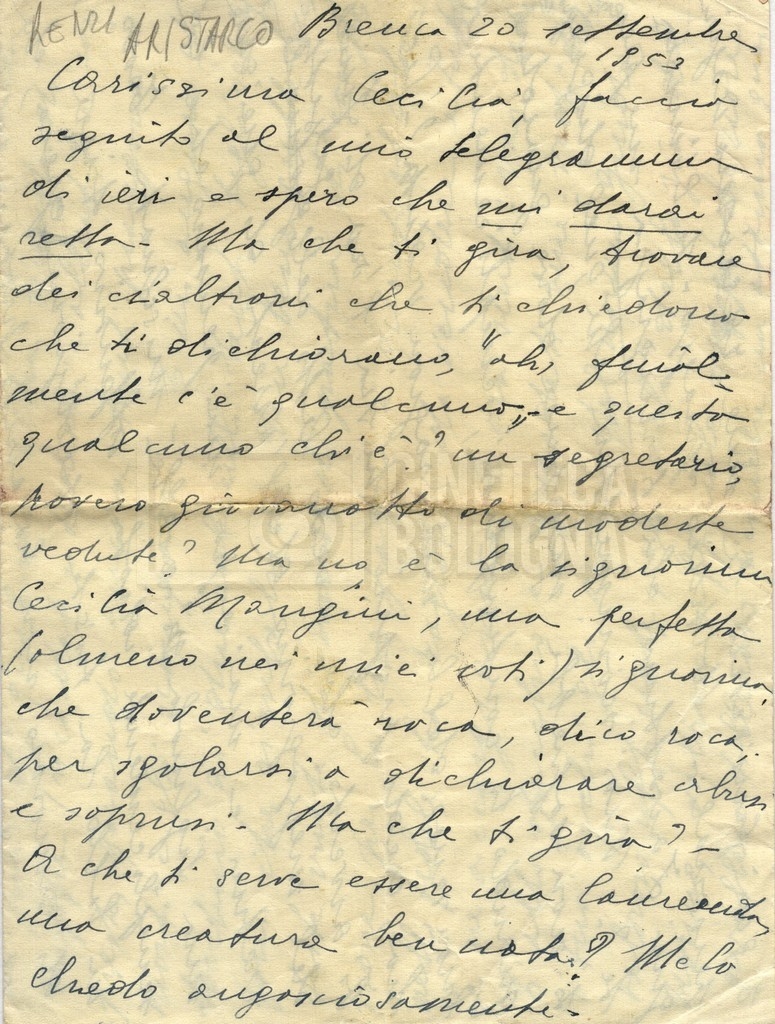 RENZI
ARISTARCO
Brenca 20 settembre
1953
Carissima Cecilia, faccio
seguito al mio telegramma
di ieri e spero che mi darai
retta - Ma che ti gira, trovare
dei cialtroni che ti chiedono
che ti dichiarano, "oh, final-
mente c'è qualcuno" - e questo
qualcuno chi è? un segretario,
povero giovanotto di modeste
vedute? Ma no, è la signorina
Cecilia Mangini, una perfetta
(almeno nei miei voti) signorina,
che doventerà roca, dico roca,
per sgolarsi a dichiarare abusi
e soprusi - Ma che ti gira? -
A che ti serve essere una laureata,
una creatura ben nata? Me lo
chiedo angosciosamente -
CINETECA
BOLOGNA